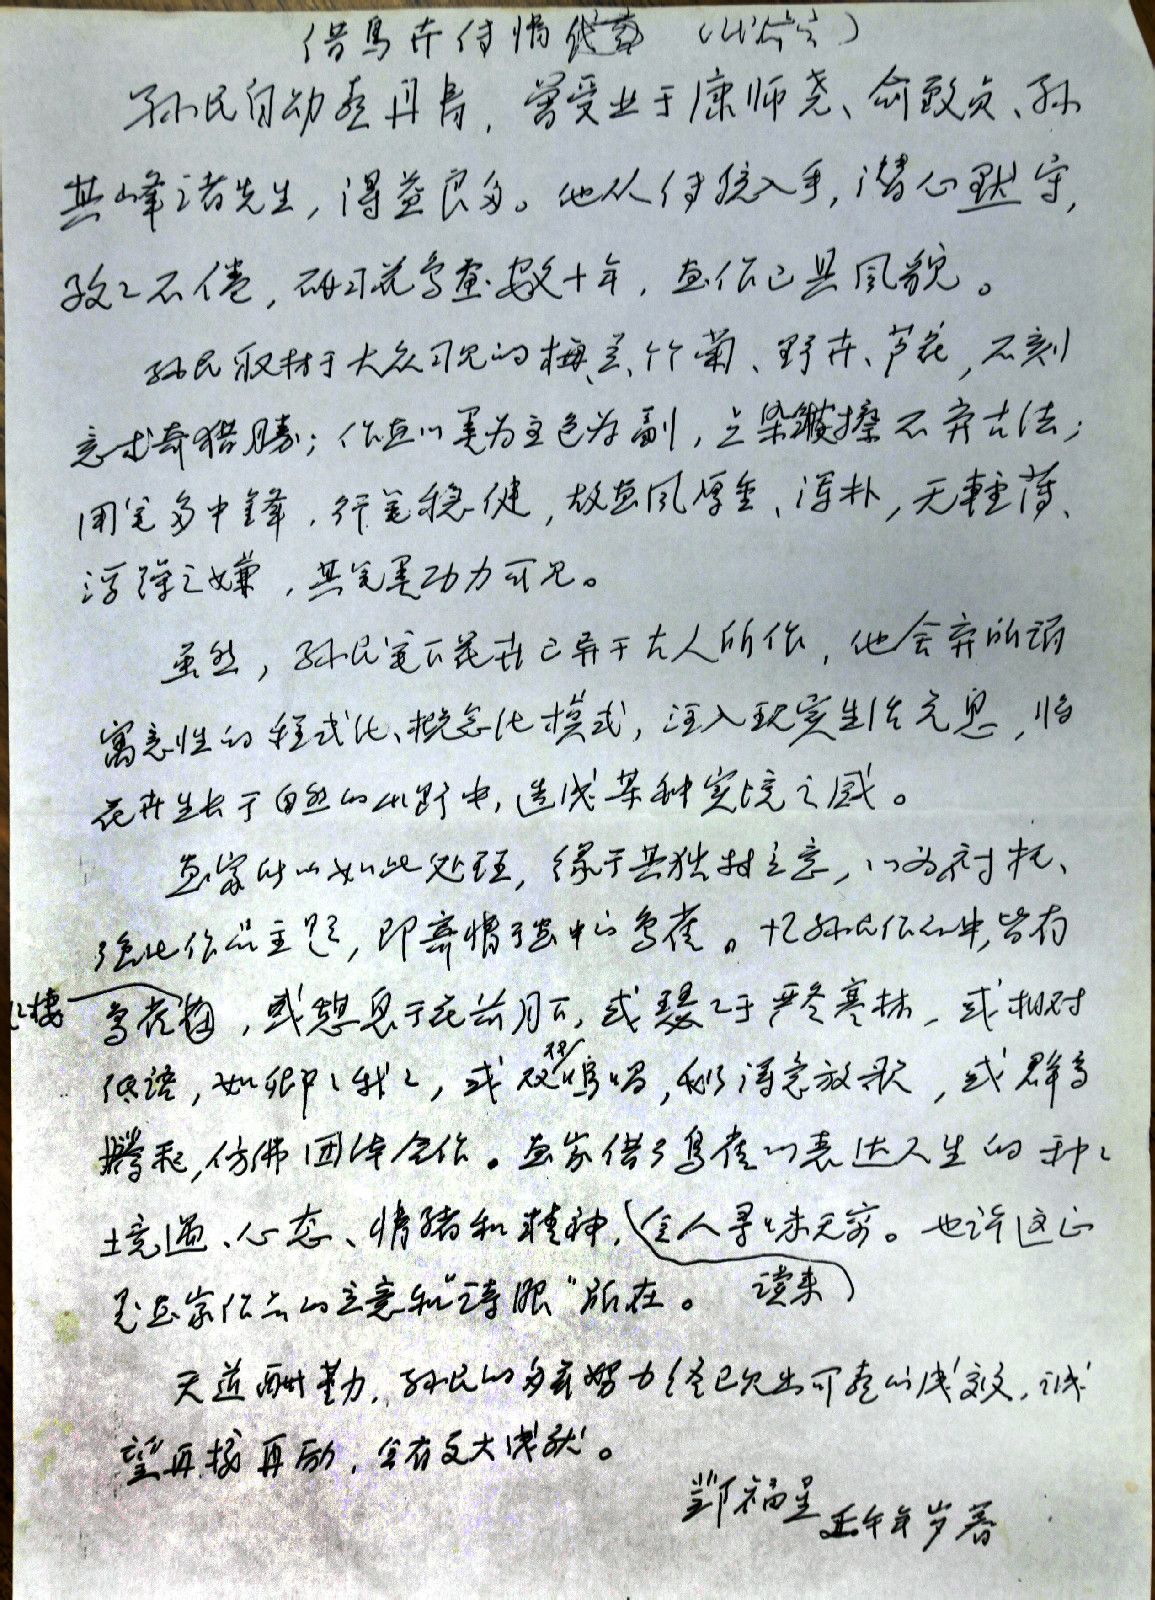 借鸟卉传情 （代序言）
孙民自幼喜丹青，曾受业于康师尧、俞致贞、孙
其峰诸先生，得益良多。他从传统入手，潜心默守，
孜々不倦，研习花鸟画数十年，画作已具风貌。
孙民取材于大众习见的梅、兰、竹、菊、野卉、芦花，不刻
意求奇猎胜；作画以墨为主色为副，点染皴擦不弃古法；
用笔多中锋，行笔稳健，故画风厚重、浑朴，无轻薄、
浮躁之嫌，其笔墨功力可见。
虽然，孙民笔下花卉已异于古人所作，他舍弃所谓
寓意性的程式化、概念化模式，注入现实生活元息，将
花卉生长于自然的山野中，造成某种实境之感。
画家所以如此处理，缘于其独特立意，以为衬托、
强化作品主题，即寄情于画中的鸟雀。在孙民作品中，皆有
鸟雀栖，或憩息于花前月下，或瑟々于严冬寒林，或相对
低语，如卿々我々，或引吭鸣唱，称得意放歌，或群鸟
腾起，仿佛团体合作。画家借了鸟雀以表达人生的种々
境遇、心态、情绪和精神，读来令人寻味无穷。也许这正
是画家作品的立意和“诗眼”所在。
天道酬勤，孙民的多年努力终已见出可喜的成效，诚
望再接再励，会有更大成就。
邓福星 壬午年岁春